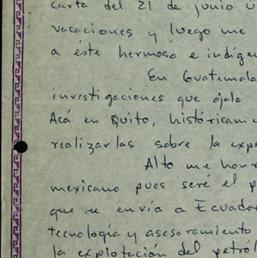 carta del 21 de junio u
vacaciones y luego me
a éste hermoso e indíge
En Guatemala
investigaciones que ojala
Acá en Quito, históricam
realizarlas sobre la expe
Alto me honr
mexicano pues seré el p
que se envía a Ecuador
tecnología y asesoramiento
la explotación del petról